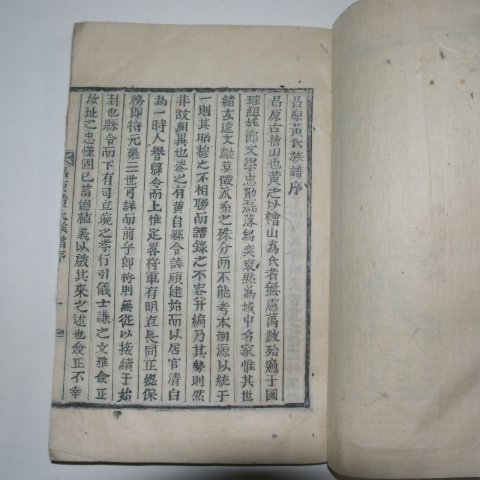 昌原黃氏族譜序
昌原古檜山也黃之以檜山為氏者無慮萬數殆遍于國
珪組旄節文學忠勳磊落焉奕裒然為域中名家惟其世
緖玄遠文獻莫徵派系之殊分而不能考本溯源以統于
一則其昭穆之不相聯而譜錄之不容幷編乃其勢則然
非故相異也峦之有黃自縣令諱頑建始而以居官清白
為一時人譽縣令而上惟定畧將軍有明直長同正總保
務卽將元雍三世可詳而前乎郞將則無從以接續于始
封也縣令而下有司立琬之孝行引儀士謙之文雅僉正
汝址之忠懂固已蓄德植義以啟其來之述也僉正不幸
昌原黃氏族譜序
一